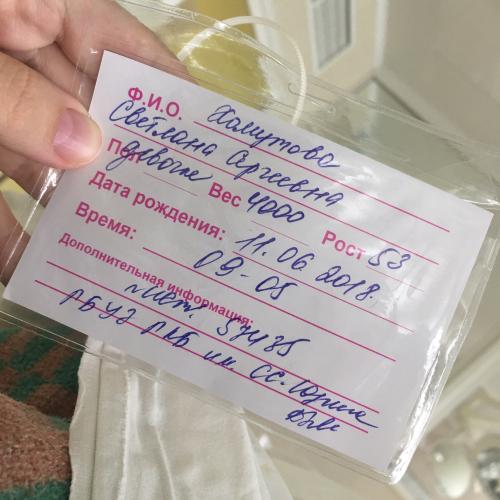 Ф.И.О. Хомутова
Светлана Сергеевна
Пол девочка Вес 4000 Рост 53
Дата рождения: 11.06.2018.
Время: 09-05
Дополнительная информация:
57435
ГБУЗ ГКБ им. СС. Юдина
ДЗМ